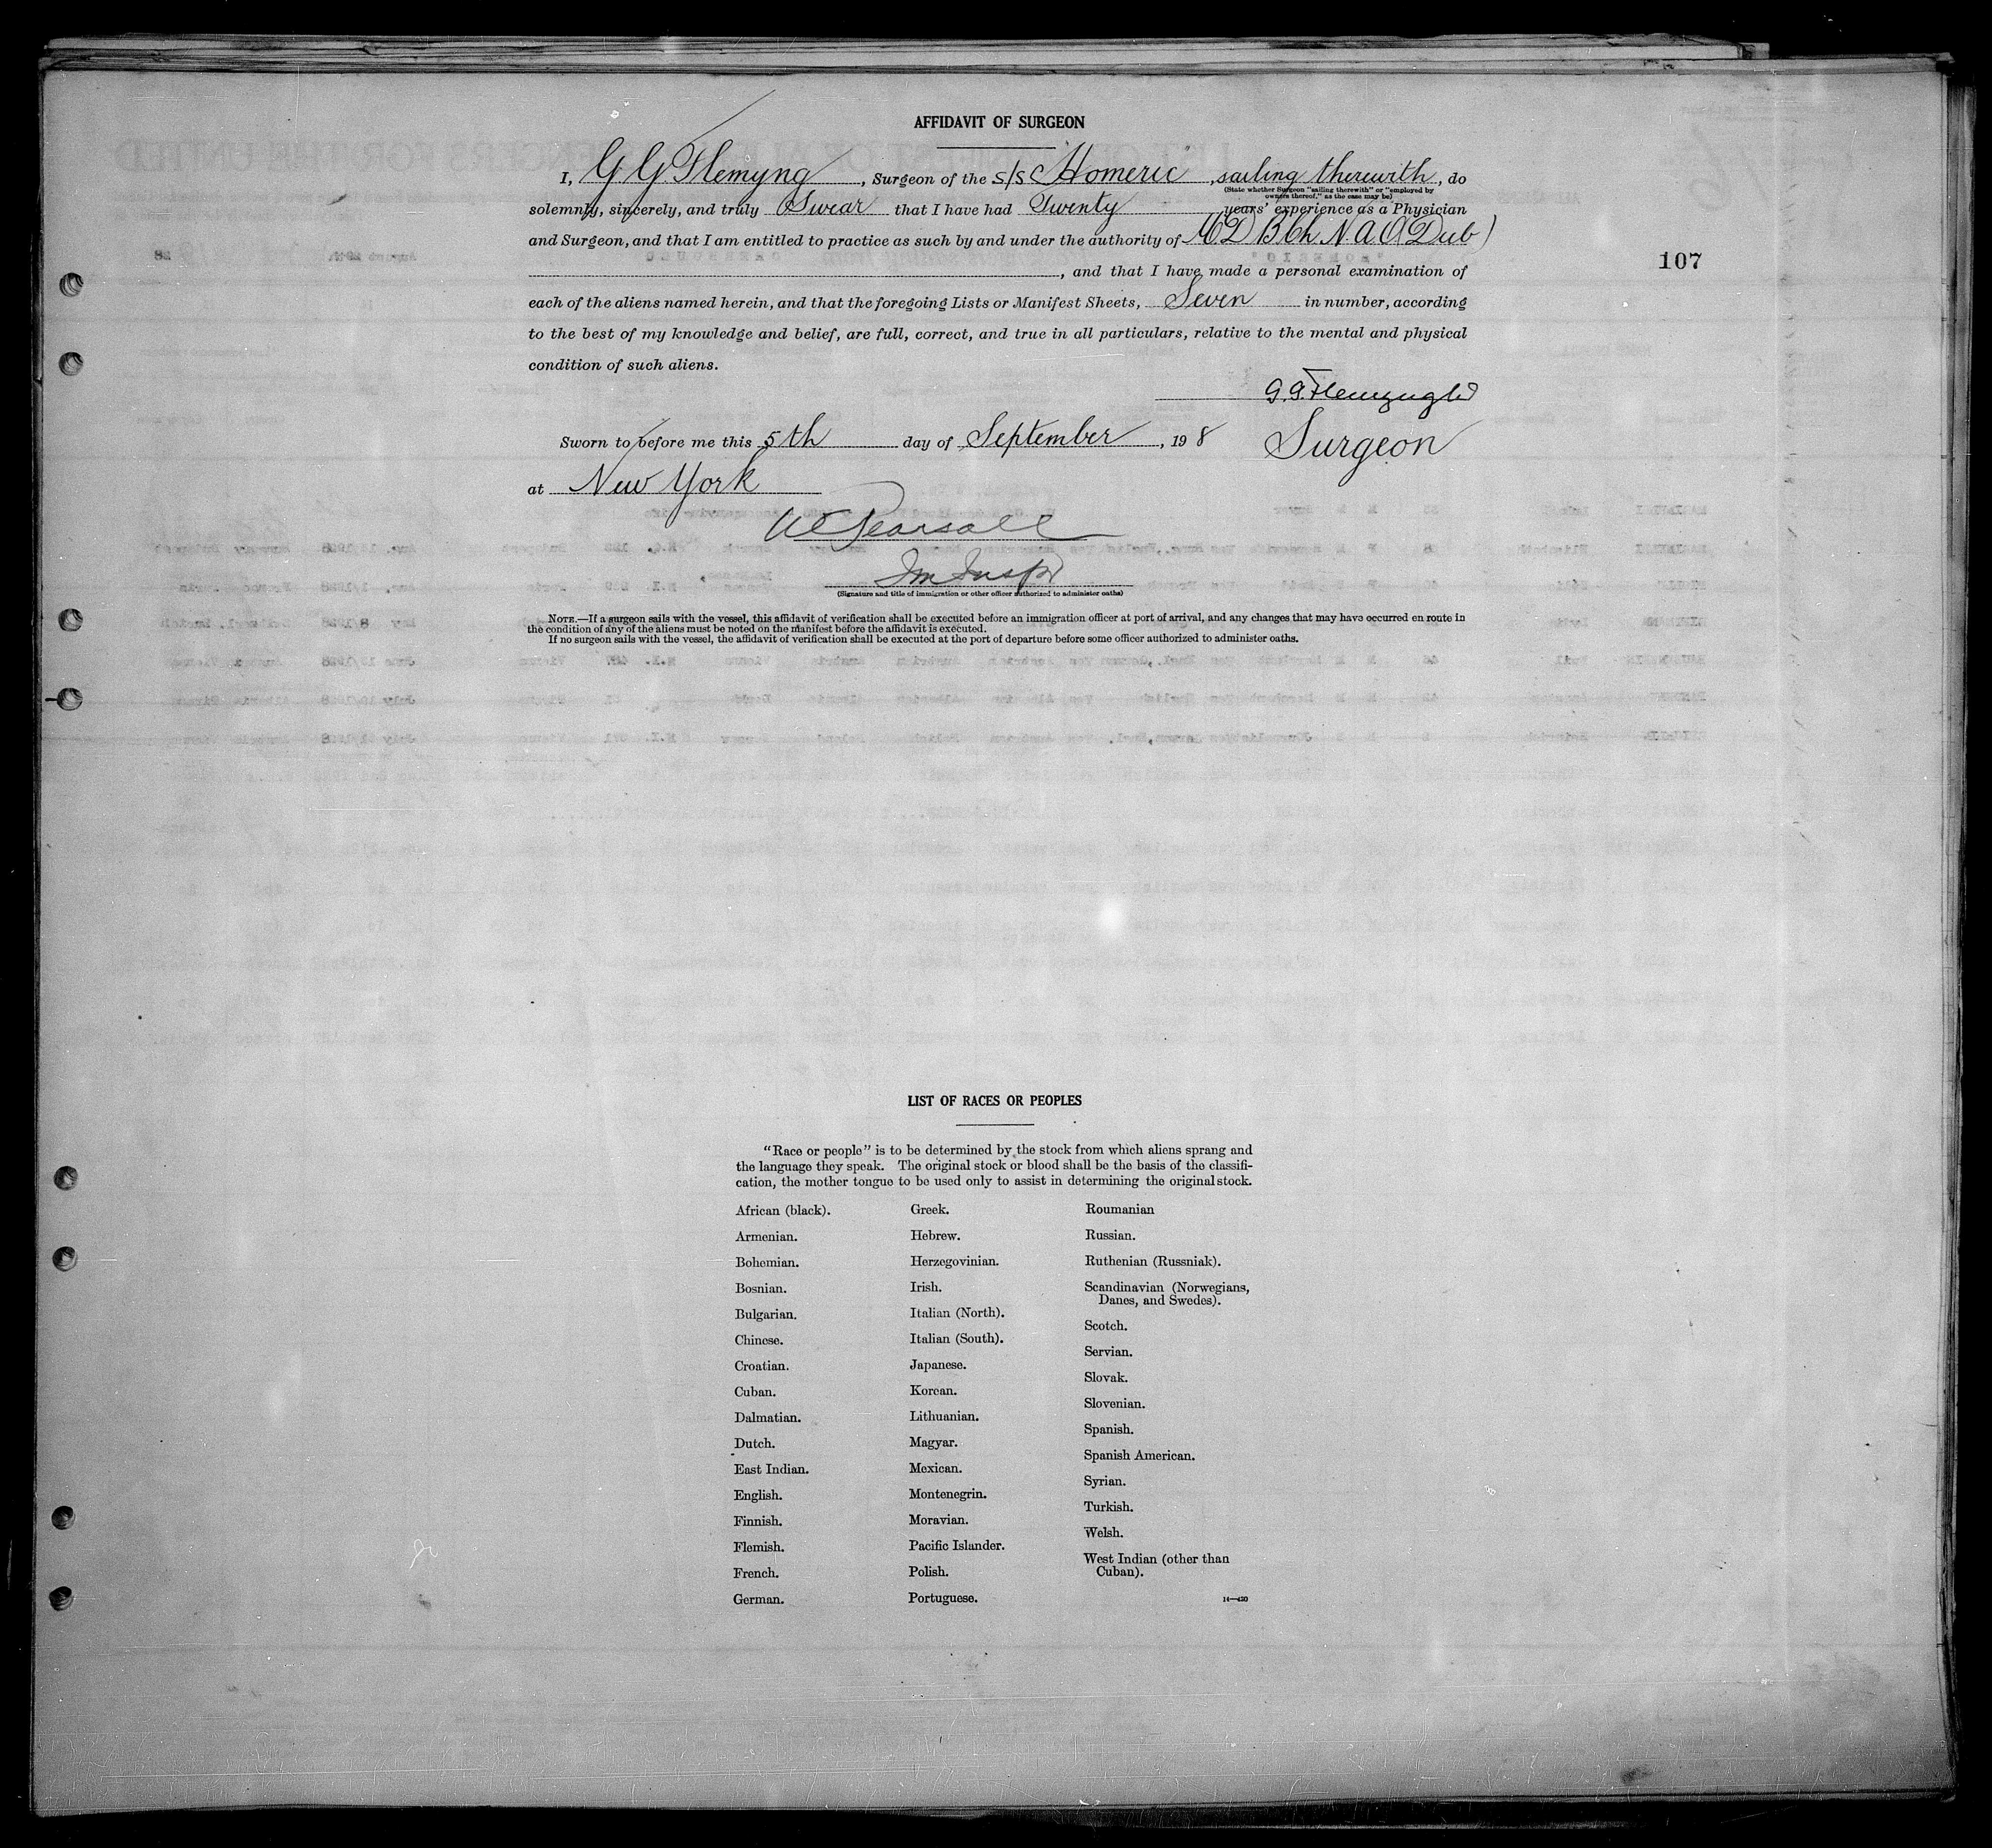 AFFIDAVIT OF SURGEON
I, G. G. Flemyng, Surgeon of the S/S Homeric, sailing therewith, do
(State whether Surgeon "sailing therewith" or "employed by
owners thereof," as the case may be)
solemnly, sincerely, and truly Swear that I have had Twenty years' experience as a Physician
and Surgeon, and that I am entitled to practice as such by and under the authority of
, and that I have made a personal examination of
107
each of the aliens named herein, and that the foregoing Lists or Manifest Sheets, Seven in number, according
to the best of my knowledge and belief, are full, correct, and true in all particulars, relative to the mental and physical
condition of such aliens.
Sworn to before me this 5th day of September, 19 8 Surgeon
at New York
W Pearsall
Im Inspr
(Signature and title of immigration or other officer authorized to administer oaths)
NOTE.—If a surgeon sails with the vessel, this affidavit of verification shall be executed before an immigration officer at port of arrival, and any changes that may have occurred en route in
the condition of any of the aliens must be noted on the manifest before the affidavit is executed.
If no surgeon sails with the vessel, the affidavit of verification shall be executed at the port of departure before some officer authorized to administer oaths.
LIST OF RACES OR PEOPLES
"Race or people" is to be determined by the stock from which aliens sprang and
the language they speak. The original stock or blood shall be the basis of the classifi-
cation, the mother tongue to be used only to assist in determining the original stock.
African (black).
Armenian.
Bohemian.
Bosnian.
Bulgarian.
Chinese.
Croatian.
Cuban.
Dalmatian.
Dutch.
East Indian.
English.
Finnish.
Flemish.
French.
German.
Greek.
Hebrew.
Herzegovinian.
Irish.
Italian (North).
Italian (South).
Japanese.
Korean.
Lithuanian.
Magyar.
Mexican.
Montenegrin.
Moravian.
Pacific Islander.
Polish.
Portuguese.
Roumanian
Russian.
Ruthenian (Russniak).
Scandinavian (Norwegians,
Danes, and Swedes).
Scotch.
Servian.
Slovak.
Slovenian.
Spanish.
Spanish American.
Syrian.
Turkish.
Welsh.
West Indian (other than
Cuban).
14—430